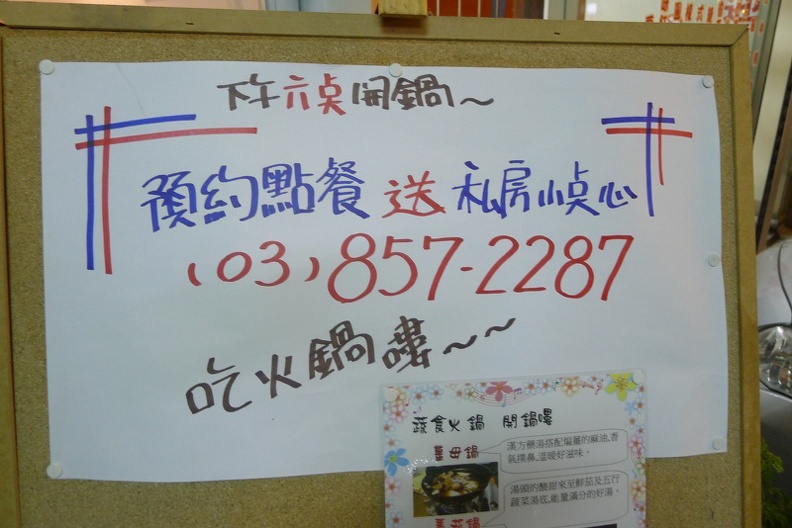 下午六点開鍋～
預約點餐 送 私房小点心
(03)857-2287
吃火鍋嘍～～
蔬食火鍋 開鍋嘍
薑母鍋
漢方藥湯搭配編薑的麻油,香
氣撲鼻,溫暖好滋味。
湯頭的酸甜來至鮮茄及五行
蔬菜湯底,能量滿分的好湯。